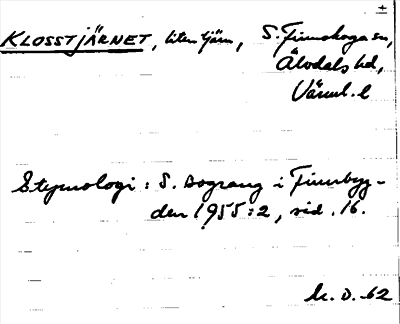 KLOSSTJÄRNET, liten tjärn, S. Finnskoga sn,
Älvdals hd,
Värml. l
Etymologi: S. Aograng i Finnbyg-
den 1955:2, sid. 16.
k. D. -62